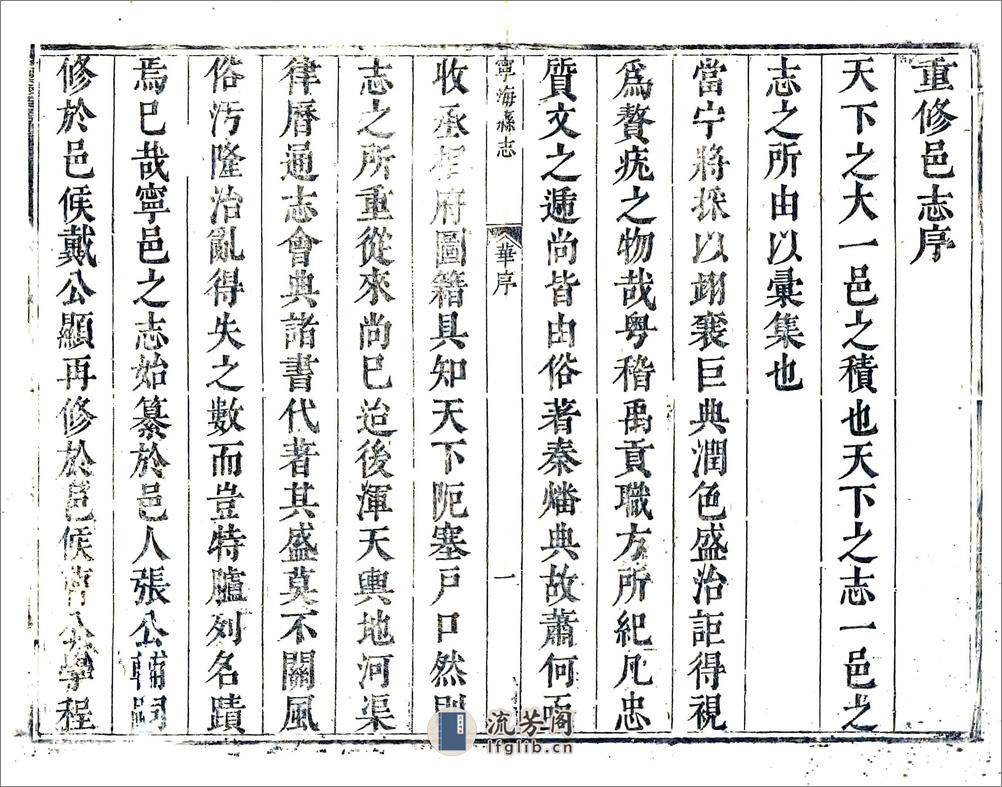 重修邑志序
天下之大一邑之積也天下之志一邑之
志之所由以彙集也
當宁將採以翊襄巨典潤色盛治詎得視
爲贅疣之物哉粤稽禹貢職方所紀凡忠
質文之遞尚皆由俗著秦燔典故蕭何
寧海縣志
華序
一
收承相府圖籍具知天下阨塞戸口然則
志之所重從來尚巳迨後渾天輿地河渠
律曆通志會典諸書代著其盛莫不關風
俗汚隆治亂得失之數而豈特臚列名蹟
焉巳哉寧邑之志始纂於邑人張公輔嗣
修於邑侯戴公顯再修於邑侯曹公學程
流芳阁
lfglib.cn